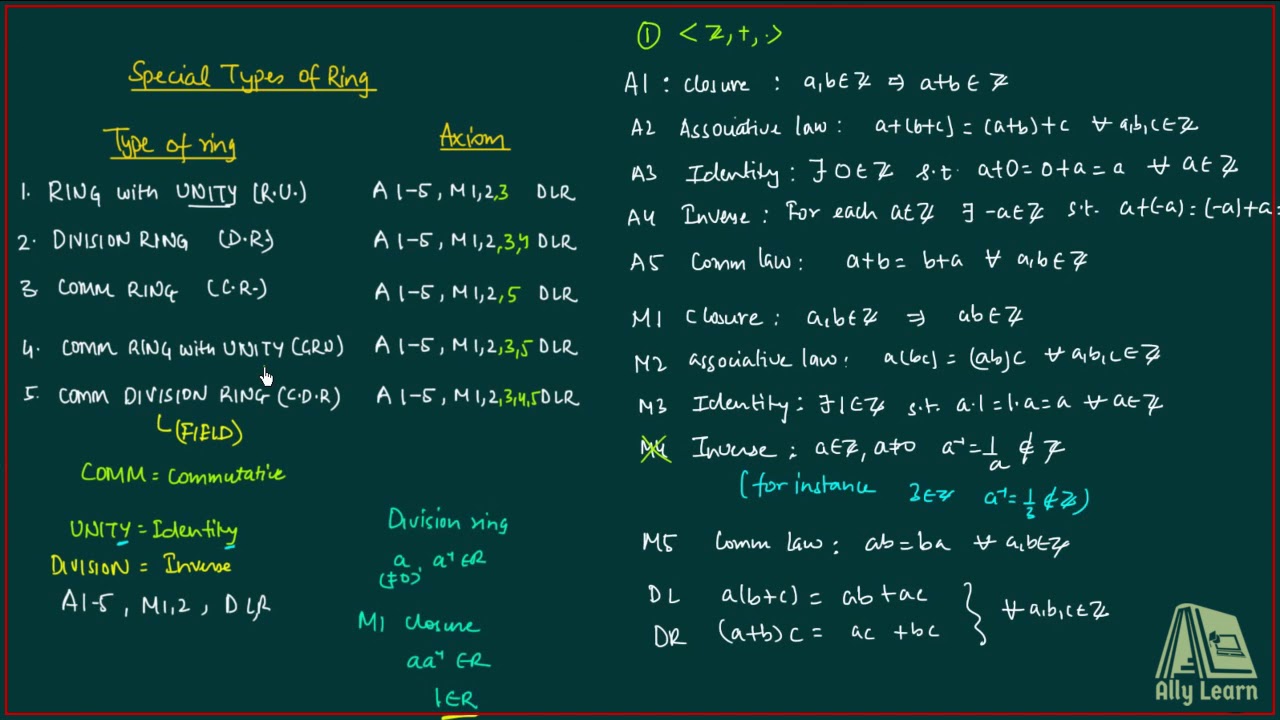 Special Types of Ring
Type of ring Axiom
1. RING with UNITY (R.U.) A 1-5, M1,2,3 DLR
2. DIVISION RING (D.R) A 1-5, M1,2,3,4 DLR
3. COMM RING (C.R.) A 1-5, M1,2,5 DLR
4. COMM RING with UNITY (CRU) A 1-5, M1,2,3,5 DLR
5. COMM DIVISION RING (C.D.R) A 1-5, M1,2,3,4,5 DLR
(FIELD)
COMM = Commutative
UNITY = Identity
DIVISION = Inverse
A1-5, M1,2, DL,R
Division ring
a, a⁻¹ ∈R
(≠0)
M1 closure
aa⁻¹ ∈R
1∈R
① <ℤ,+,·>
A1 : closure : a,b∈ℤ ⇒ a+b∈ℤ
A2 Associative law: a+(b+c) = (a+b)+c ∀ a,b,c∈ℤ
A3 Identity: ∃ 0∈ℤ s.t. a+0=0+a=a ∀ a∈ℤ
A4 Inverse: For each a∈ℤ ∃ -a∈ℤ s.t. a+(-a)=(-a)+a=
A5 Comm law: a+b=b+a ∀ a,b∈ℤ
M1 closure: a,b∈ℤ ⇒ ab∈ℤ
M2 associative law: a(bc)=(ab)c ∀ a,b,c∈ℤ
M3 Identity: ∃ 1∈ℤ s.t. a·1=1·a=a ∀ a∈ℤ
M4 Inverse: a∈ℤ, a≠0 a⁻¹=1/a ∉ ℤ
(for instance 3∈ℤ a⁻¹=1/3 ∉ℤ)
M5 Comm law: ab=ba ∀ a,b∈ℤ
DL a(b+c) = ab+ac
DR (a+b)c = ac+bc } ∀ a,b,c∈ℤ
Ally Learn